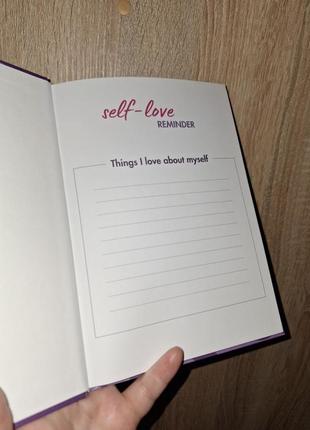 self-love
REMINDER
Things I love about myself